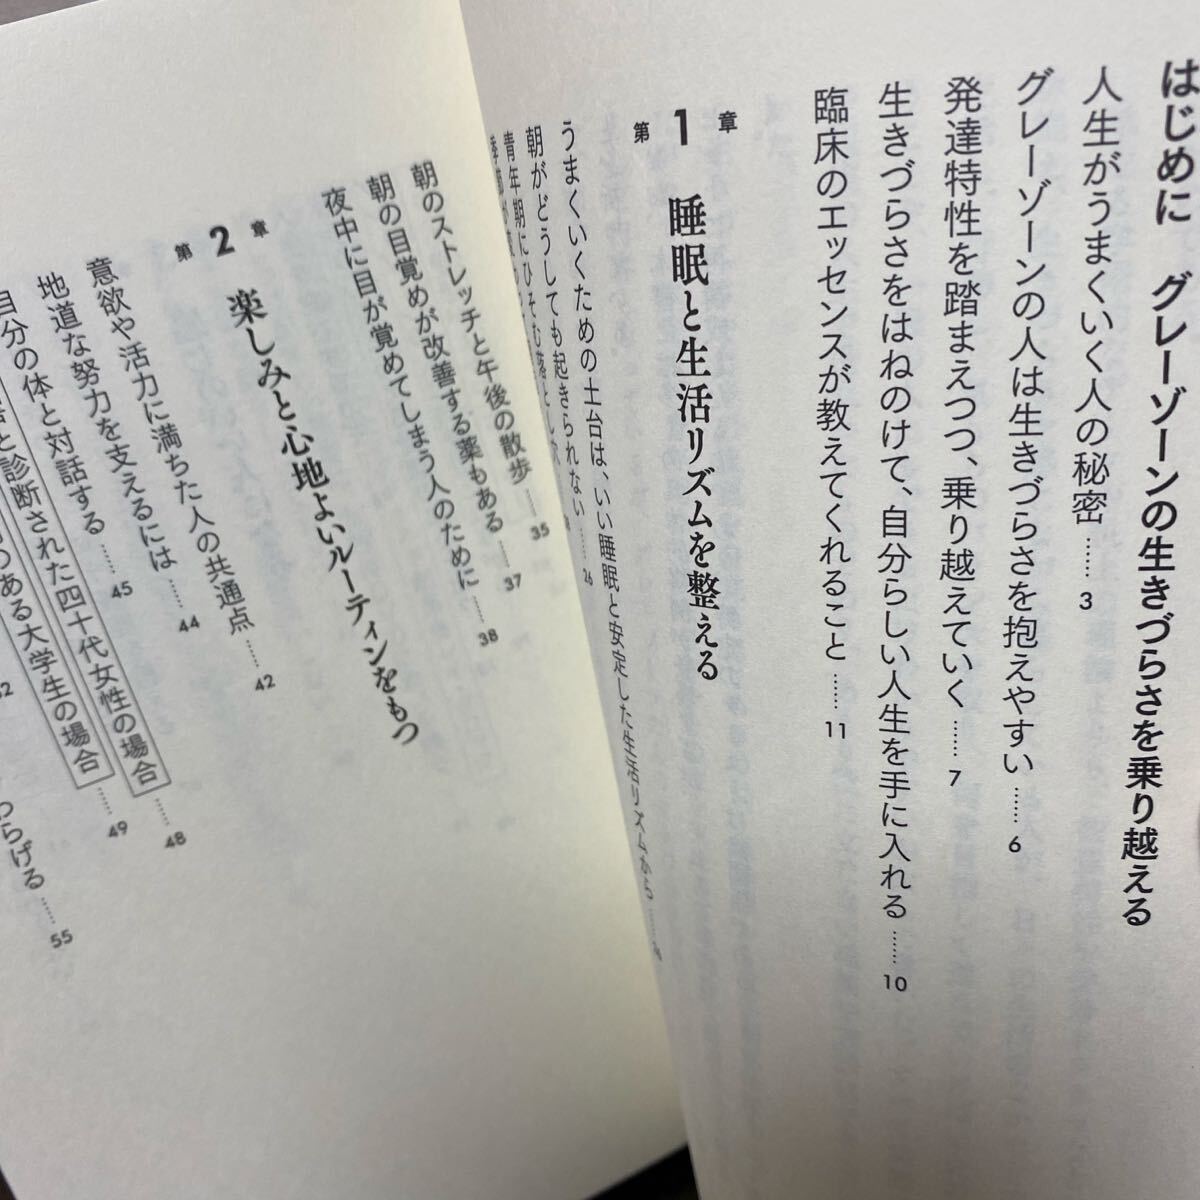 はじめに グレーゾーンの生きづらさを乗り越える
人生がうまくいく人の秘密 …… 3
グレーゾーンの人は生きづらさを抱えやすい …… 6
発達特性を踏まえつつ、乗り越えていく …… 7
生きづらさをはねのけて、自分らしい人生を手に入れる …… 10
臨床のエッセンスが教えてくれること …… 11
第1章 睡眠と生活リズムを整える
うまくいくための土台は、いい睡眠と安定した生活リズムから ……
朝がどうしても起きられない …… 26
青年期にひそむ落とし穴
季節が
朝のストレッチと午後の散歩 …… 35
朝の目覚めが改善する薬もある …… 37
夜中に目が覚めてしまう人のために …… 38
第2章 楽しみと心地よいルーティンをもつ
意欲や活力に満ちた人の共通点 …… 42
地道な努力を支えるには …… 44
自分の体と対話する …… 45
と診断された四十代女性の場合 …… 48
のある大学生の場合 …… 49
わらげる …… 55